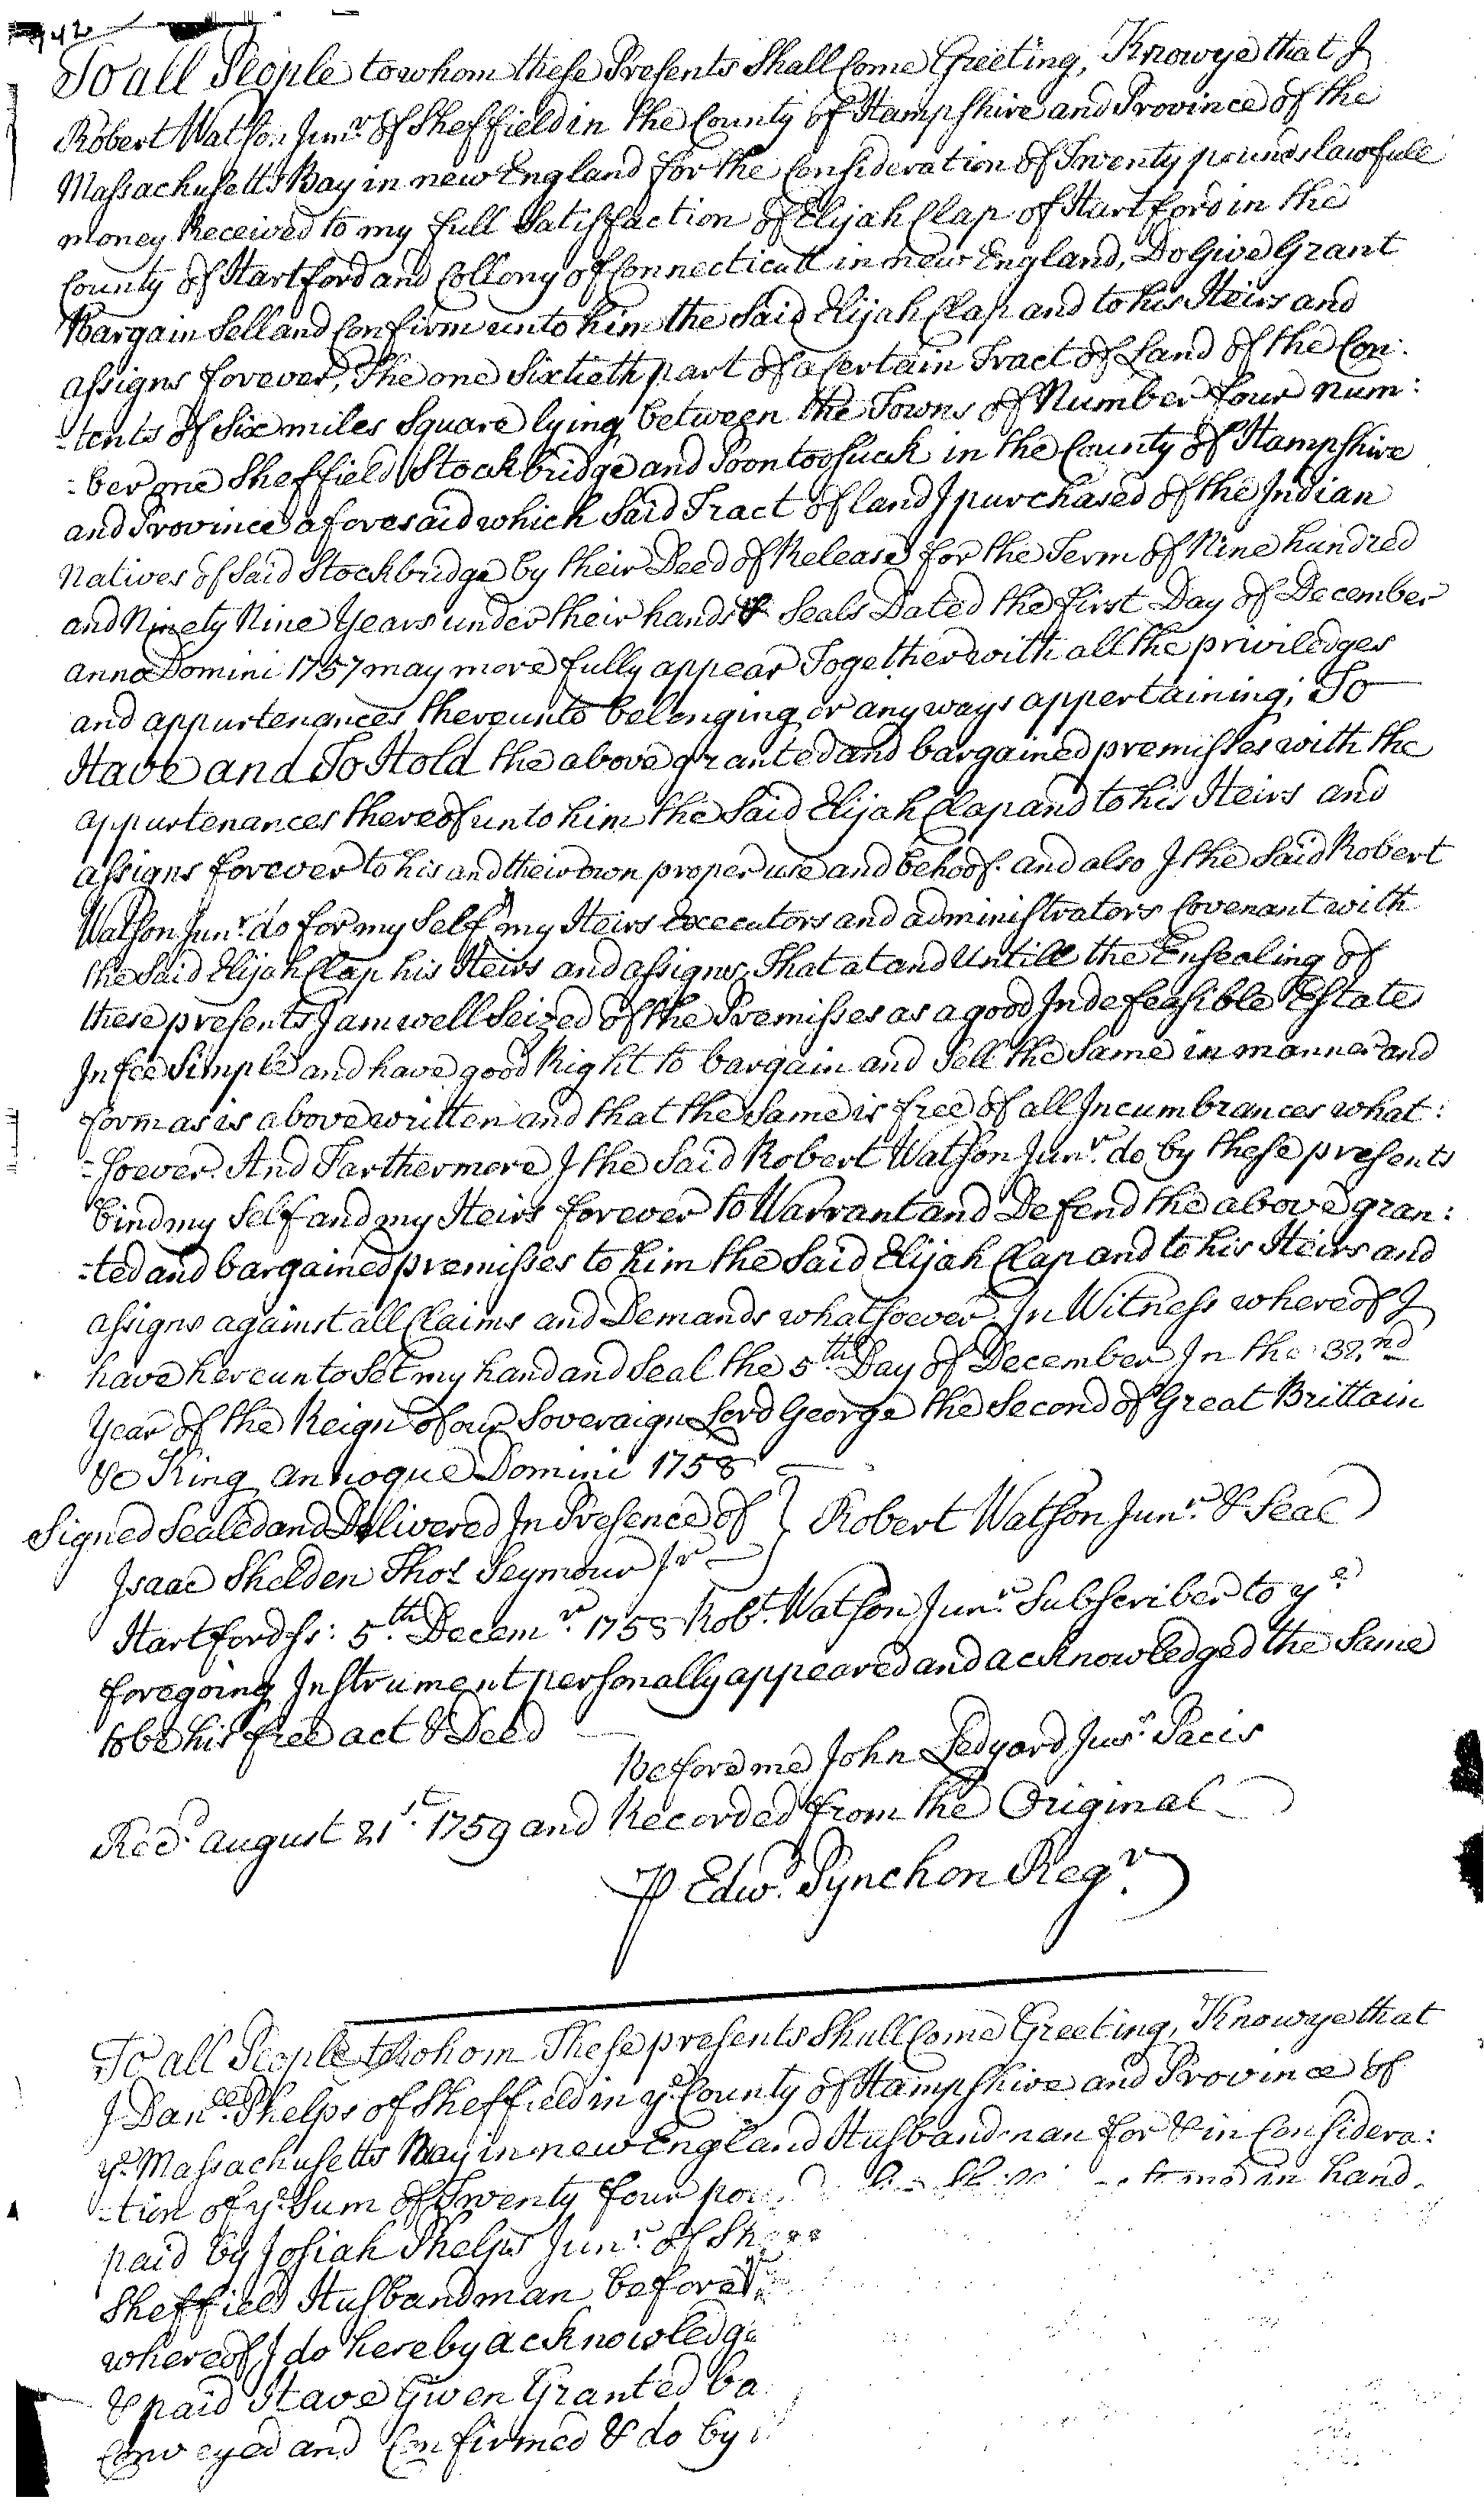 To all People to whom these Presents Shall Come Greeting, Know ye that I
Robert Watson Junr. of Sheffield in the County of Hampshire and Province of the
Massachusetts Bay in new England for the Consideration of Twenty pounds lawfull
money Received to my full Satisfaction of Elijah Clap of Hartford in the
County of Hartford and Collony of Connecticutt in new England, Do Give Grant
Bargain Sell and Confirm unto him the Said Elijah Clap and to his Heirs and
assigns forever, The one Sixtieth part of a Certain Tract of Land of the Con:
-tents of Six miles Square lying between the Towns of Number four num:
-ber one Sheffield Stockbridge and Poontoosuck in the County of Hampshire
and Province aforesaid which Said Tract of land I purchased of the Indian
Natives of Said Stockbridge by their Deed of Release for the Term of Nine hundred
and Ninety Nine Years under their hands & Seals Dated the first Day of December
anno Domini 1757 may more fully appear Together with all the priviledges
and appurtenances thereunto belonging or any ways appertaining; To
Have and To Hold the above granted and bargained premisses with the
appurtenances thereof unto him the Said Elijah Clap and to his Heirs and
assigns forever to his and their own proper use and behoof. and also I the Said Robert
Watson Junr. do for my Self my Heirs executors and administrators Covenant with
the Said Elijah Clap his Heirs and assigns, That at and Untill the Ensealing of
these presents I am well Seized of the Premisses as a good Indefeasible Estate
In fee Simple and have good Right to bargain and Sell the Same in manner and
form as is above written and that the Same is free of all Incumbrances what:
-soever. And Farthermore I the Said Robert Watson Junr. do by these presents
bind my Self and my Heirs forever to Warrant and Defend the above gran:
-ted and bargained premisses to him the Said Elijah Clap and to his Heirs and
assigns against all Claims and Demands whatsoever. In Witness whereof I
have hereunto Set my hand and Seal the 5th. Day of December In the 32.nd
Year of the Reign of our Soveraign Lord George the Second of Great Brittain
&c King annoque Domini 1758
Signed Sealed and Delivered In Presence of } Robert Watson Junr. & Seal
Isaac Shelden Thos Seymour Jr
Hartford ss: 5th. Decemr. 1758 Robt. Watson Junr. Subscriber to ye.
foregoing Instrument personally appeared and acknowledged the Same
to be his free act & Deed
Before me John Ledyard Jusr. Pacis
Recd. august 21st. 1759 and Recorded from the Original
P Edwd. Pynchon Regr.
To all People to whom These presents Shall Come Greeting, Know ye that
I Danell. Phelps of Sheffield in ye. County of Hampshire and Province of
ye. Massachusetts Bay in new England Husbandman for & in Considera:
-tion of ye. Sum of Twenty four to me in hand
paid by Josiah Phelps Junr. of
Sheffield Husbandman before
whereof I do hereby acknowledge
& paid Have Given Granted ba
Conveyed and Confirmed & do by